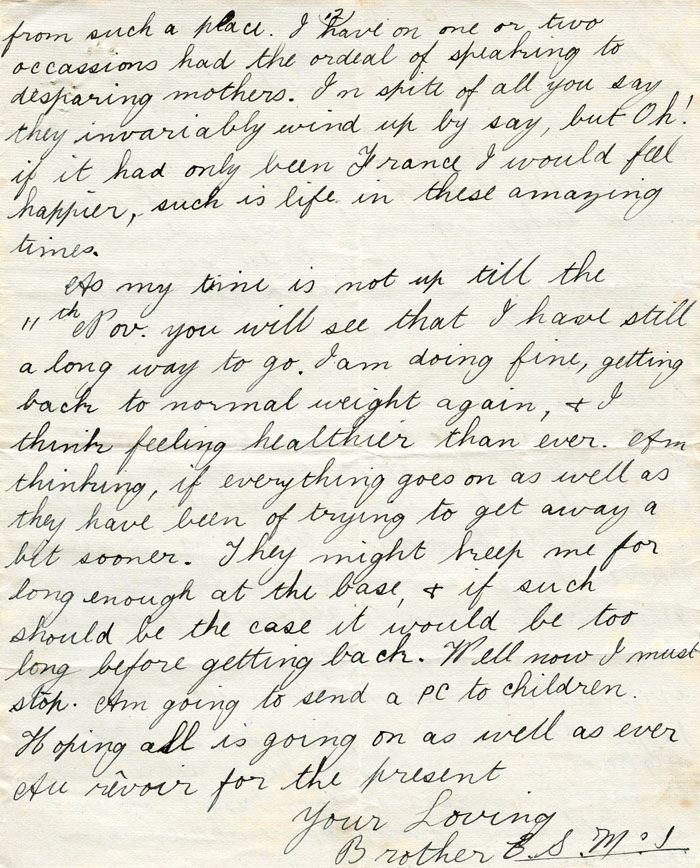 from such a place. I have on one or two
occassions had the ordeal of speaking to
desparing mothers. In spite of all you say
they invariably wind up by say, but Oh!
if it had only been France I would feel
happier, such is life in these amazing
times.
As my time is not up till the
11th Nov. you will see that I have still
a long way to go. I am doing fine, getting
back to normal weight again, & I
think feeling healthier than ever. Am
thinking, if everything goes on as well as
they have been of trying to get away a
bit sooner. They might keep me for
long enough at the base, & if such
should be the case it would be too
long before getting back. Well now I must
stop. Am going to send a PC to children.
Hoping all is going on as well as ever
Au rêvoir for the present
Your Loving
Brother E. S. McI.